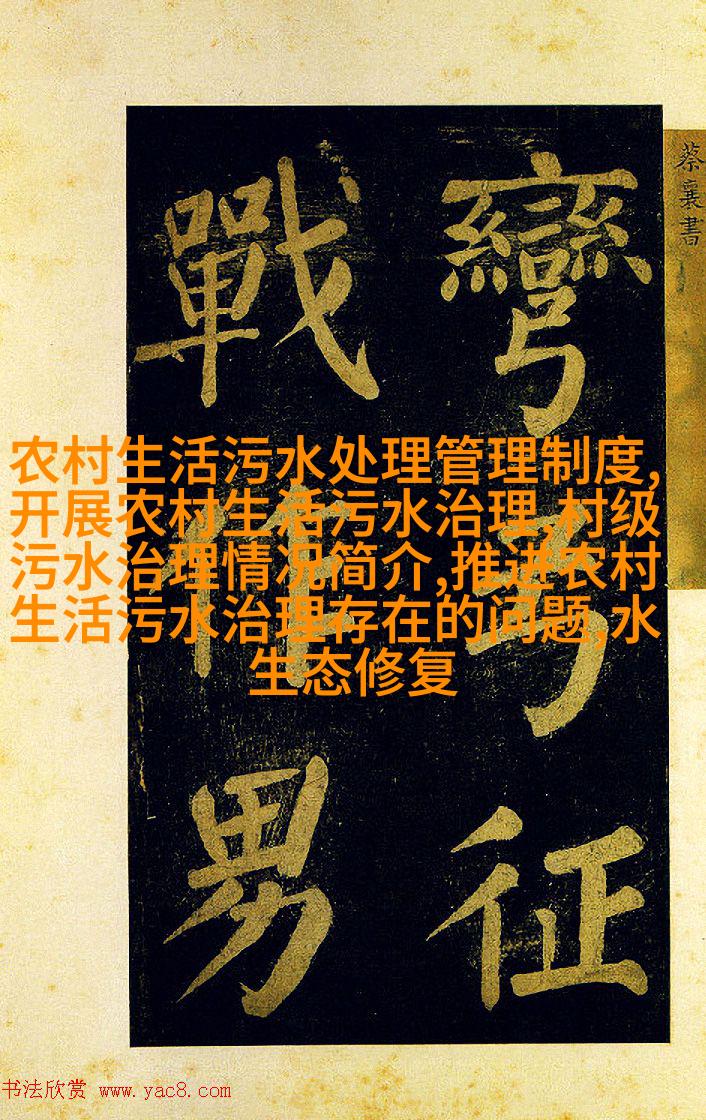 蔡襄書
彎弓征
戰作男
农村生活污水处理管理制度,
开展农村生活污水治理,村级
污水治理情况简介,推进农村
生活污水治理存在的问题,水
生态修复
书法欣赏 www.yac8.com